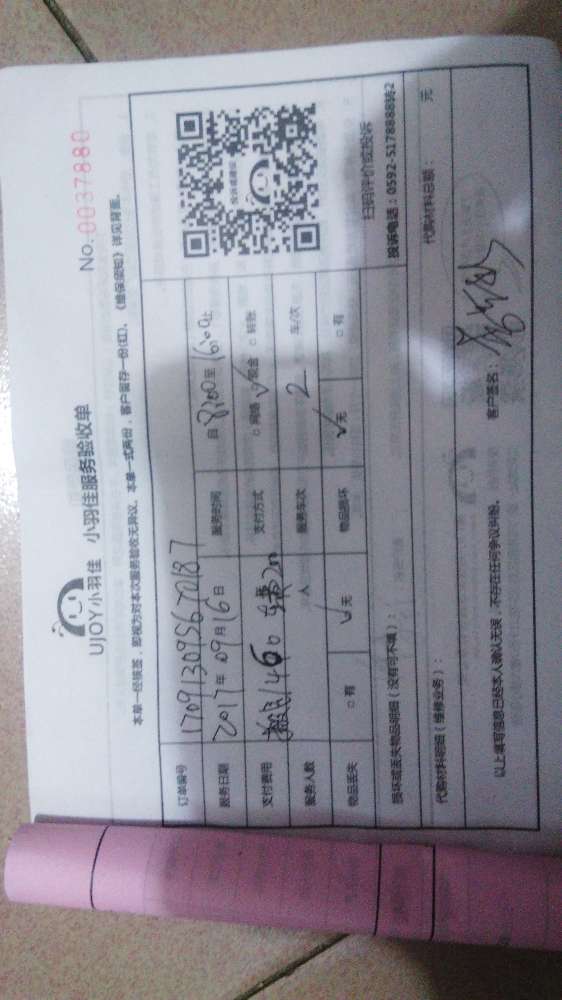 UJOY小羽佳 小羽佳服务验收单
No.0037880
本单一经核签，即视为对本次服务验收无异议。本单一式两份，客户留存一份(红)。《维保须知》详见背面。
订单编号 170913095670187
服务日期 2017年09月16日 服务时间 自 8:00 至 16:00 止
支付费用 支付方式 □网络 √现金 □转账
服务人数 人 服务车次 2 车/次
物品丢失 □有 √无 物品损坏 √无 □有
扫码评价或投诉
投诉电话：0592-5178888转2
损坏或丢失物品明细（没有可不填）：
代购材料明细（维修业务）： 代购材料总额： 元
以上填写信息已经本人确认无误，不存在任何争议纠纷。 客户签名：